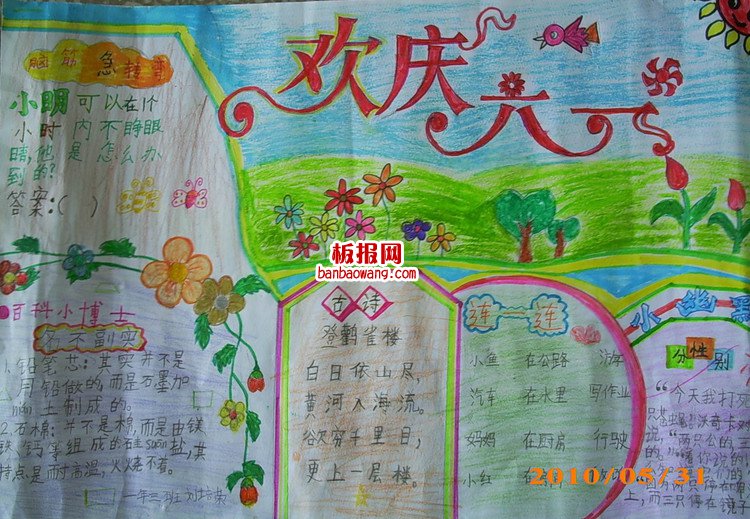 欢庆六一
脑筋急转弯
小明可以在1个
小时内不睁眼
睛,他是怎么办
到的?
答案:( )
板报网
banbaowang.com
百科小博士
名不副实
铅笔芯:其实并不是
用铅做的,而是石墨加
土制成的。
2.石棉:并不是棉,而是由镁
铁、钙等组成的硅suān盐,其
特点是耐高温,火烧不着。
一年三班
古诗
登鹳雀楼
白日依山尽,
黄河入海流。
欲穷千里目,
更上一层楼。
连一连
小鱼 在公路 游
汽车 在水里 写作业
妈妈 在厨房 行驶
小红 在
小幽默
分性别
“今天我打死
说的。
“两只公的三
上,而三只停在镜子
2010/05/31